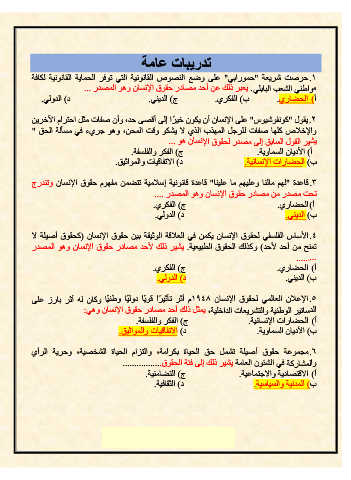 تدريبات عامة
١.حرصت شريعة "حمورابي" على وضع النصوص القانونية التي توفر الحماية القانونية لكافة
مواطني الشعب البابلي. يعبر ذلك عن أحد مصادر حقوق الإنسان وهو المصدر ...
أ) الحضاري. ب) الفكري. ج) الديني. د) الدولي.
٢.يقول "كونفوشيوس" على الإنسان أن يكون خيرًا إلى أقصى حد، وأن صفات مثل احترام الآخرين
والإخلاص كلها صفات للرجل المهذب الذي لا يشكو وقت المحن، وهو جريء في مسألة الحق "
يشير القول السابق إلى مصدر لحقوق الإنسان هو ...
أ) الأديان السماوية. ج) الفكر والفلسفة.
ب) الحضارات الإنسانية. د) الاتفاقيات والمواثيق.
٣.قاعدة "لهم مالنا وعليهم ما علينا" قاعدة قانونية إسلامية تتضمن مفهوم حقوق الإنسان وتندرج
تحت مصدر من مصادر حقوق الإنسان وهو المصدر ....
أ) الحضاري. ج) الفكري.
ب) الديني. د) الدولي.
٤.الأساس الفلسفي لحقوق الإنسان يكمن في العلاقة الوثيقة بين حقوق الإنسان (كحقوق أصيلة لا
تمنح من أحد لأحد) وكذلك الحقوق الطبيعية. يشير ذلك لأحد مصادر حقوق الإنسان وهو المصدر
........
أ) الحضاري. ج) الفكري.
ب) الديني. د) الدولي.
٥.الإعلان العالمي لحقوق الإنسان ١٩٤٨م أثر تأثيرًا قويًا دوليًا وطنيًا وكان له أثر بارز على
الدساتير الوطنية والتشريعات الداخلية. يمثل ذلك أحد مصادر حقوق الإنسان وهي:
أ) الحضارات الإنسانية. ج) الفكر والفلسفة.
ب) الأديان السماوية. د) الاتفاقيات والمواثيق.
٦.مجموعة حقوق أصيلة تشمل حق الحياة بكرامة، والتزام الحياة الشخصية، وحرية الرأي
والمشاركة في الشئون العامة يشير ذلك إلى فئة الحقوق.................
أ) الاقتصادية والاجتماعية. ج) التضامنية.
ب) المدنية والسياسية. د) الثقافية.